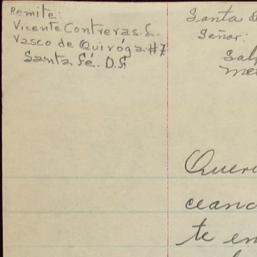 Remite:
Vicente Contreras. S.
Vasco de Quiróga #7
Santa Fé. D.F
Santa
Señor:
Sal
me
Quer
te en